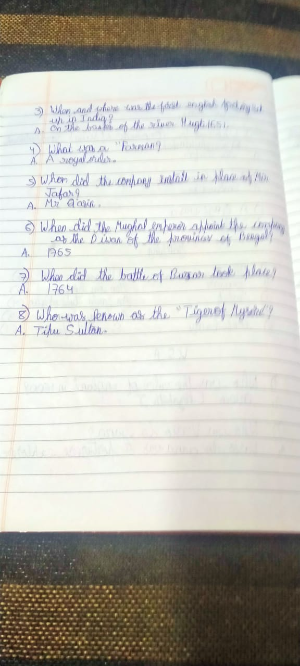 3) When and where was the first english factory set
up in India?
A. On the banks of the river Hugli 1651.
4) What was a "Farman?
A. A royal order.
5) When did the company install in place of Mir
Jafar?
A. Mir Qasim.
6) When did the Mughal emperor appoint the company
as the Diwan of the provinces of Bengal?
A. 1765
7) When did the battle of Buxar took place?
A. 1764
8) Who was known as the "Tiger of Mysore"?
A. Tipu Sultan.